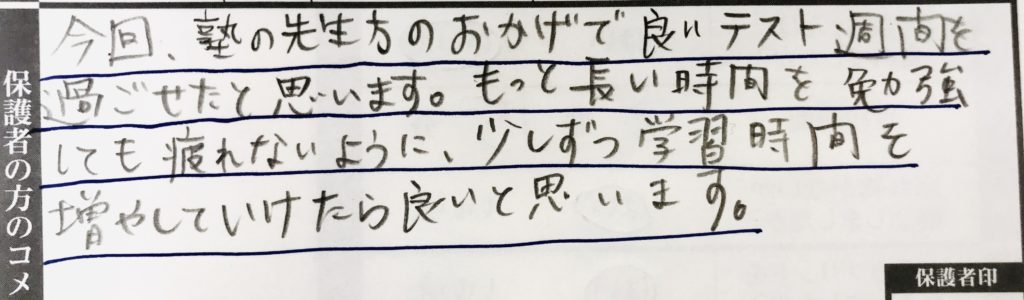 今回、塾の先生方のおかげで良いテスト週間を
過ごせたと思います。もっと長い時間を勉強
しても疲れないように、少しずつ学習時間を
増やしていけたら良いと思います。
保護者の方のコメ
保護者印